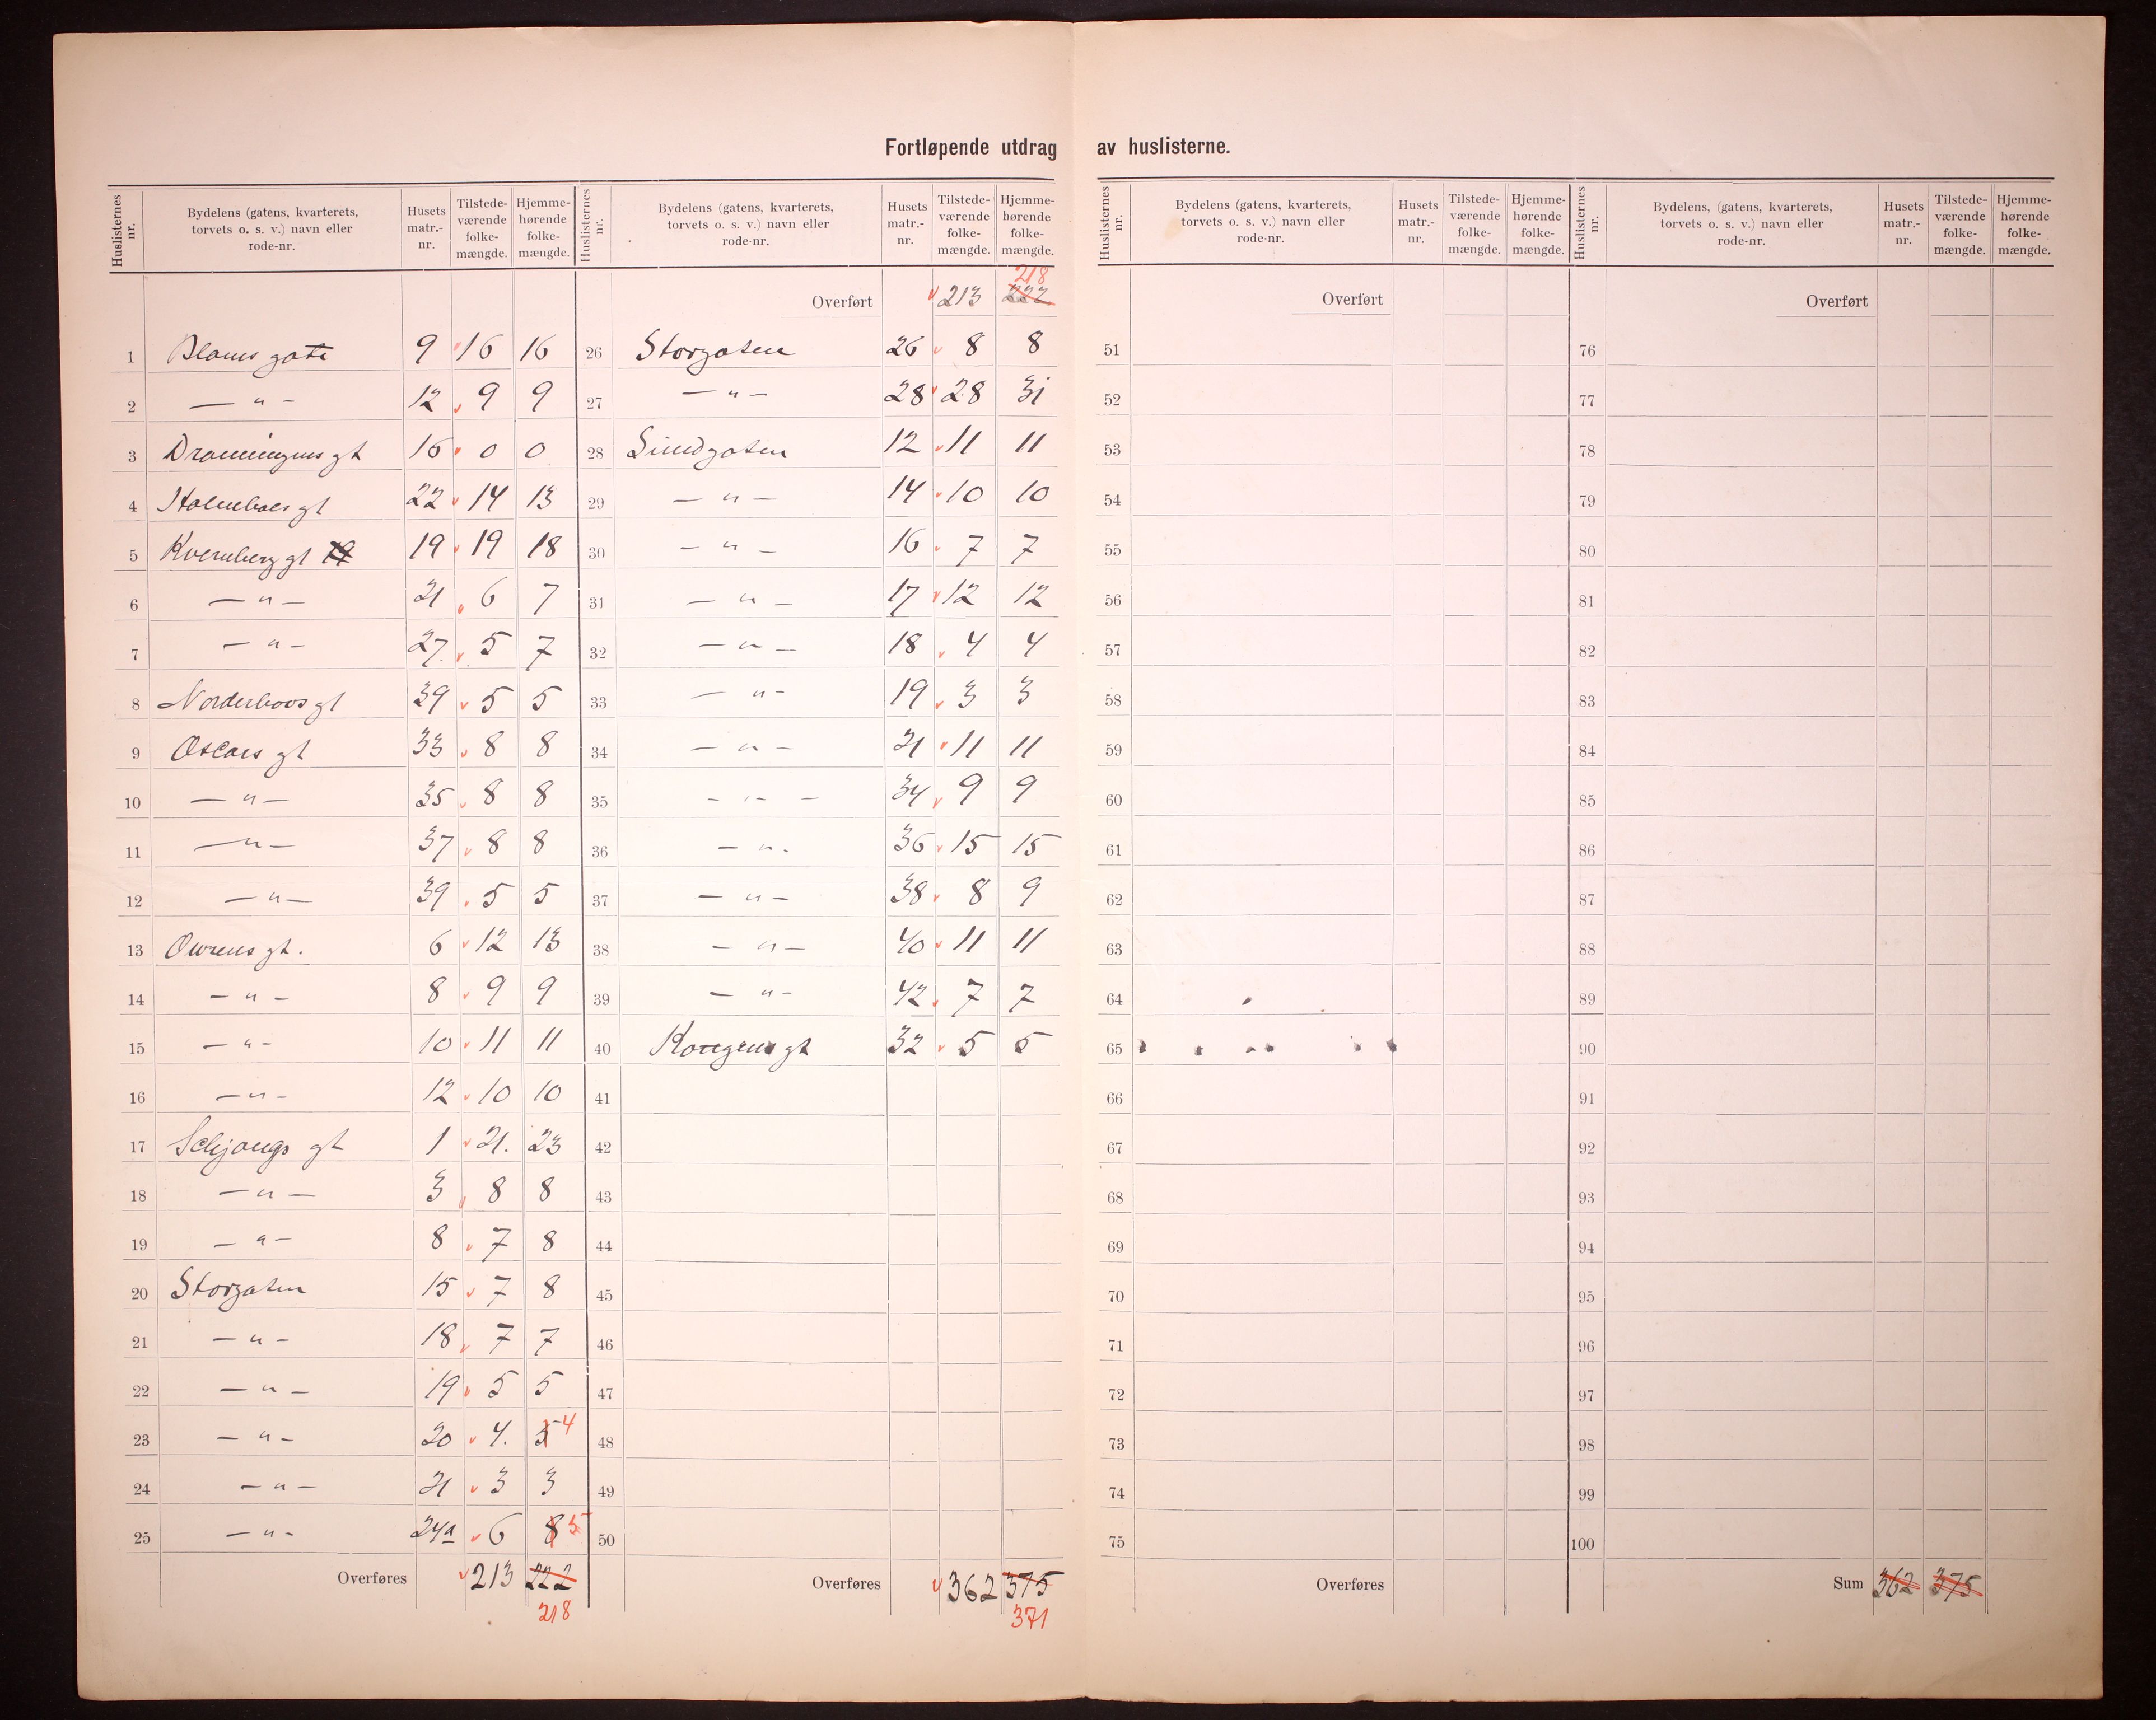 Fortløpende utdrag av huslisterne.
Huslisternes nr. Bydelens (gatens, kvarterets, torvets o. s. v.) navn eller rode-nr. Husets matr.-nr. Tilstede-værende folke-mængde. Hjemme-hørende folke-mængde.
1 gate 9 16 16
2 — " — 12 9 9
3 Dronningens gt 16 0 0
4 Holmboes gt 22 14 13
5 Kvernberg gt 19 19 18
6 — " — 21 6 7
7 — " — 27 5 7
8 gt 39 5 5
9 Oscars gt 33 8 8
10 — " — 35 8 8
11 — " — 37 8 8
12 — " — 39 5 5
13 Owrens gt. 6 12 13
14 — " — 8 9 9
15 — " — 10 11 11
16 — " — 12 10 10
17 Schjongs gt 1 21. 23
18 — " — 3 8 8
19 — " — 8 7 8
20 Storgaten 15 7 8
21 — " — 18 7 7
22 — " — 19 5 5
23 — " — 20 4. 5 4
24 — " — 21 3 3
25 — " — 24a 6 8 5
Overføres 213 222
218
Huslisternes nr. Bydelens (gatens, kvarterets, torvets o. s. v.) navn eller rode-nr. Husets matr.-nr. Tilstede-værende folke-mængde. Hjemme-hørende folke-mængde.
218
Overført 213 222
26 Storgaten 26 8 8
27 — " — 28 28 31
28 Sundgaten 12 11 11
29 — " — 14 10 10
30 — " — 16 7 7
31 — " — 17 12 12
32 — " — 18 4 4
33 — " — 19 3 3
34 — " — 21 11 11
35 — " — 34 9 9
36 — " — 36 15 15
37 — " — 38 8 9
38 — " — 40 11 11
39 — " — 42 7 7
40 Kongens gt 32 5 5
41
42
43
44
45
46
47
48
49
50
Overføres 362 375
371
Huslisternes nr. Bydelens (gatens, kvarterets, torvets o. s. v.) navn eller rode-nr. Husets matr.-nr. Tilstede-værende folke-mængde. Hjemme-hørende folke-mængde.
Overført
51
52
53
54
55
56
57
58
59
60
61
62
63
64
65
66
67
68
69
70
71
72
73
74
75
Overføres
Huslisternes nr. Bydelens, (gatens, kvarterets, torvets o. s. v.) navn eller rode-nr. Husets matr.-nr. Tilstede-værende folke-mængde. Hjemme-hørende folke-mængde.
Overført
76
77
78
79
80
81
82
83
84
85
86
87
88
89
90
91
92
93
94
95
96
97
98
99
100
Sum 362 375